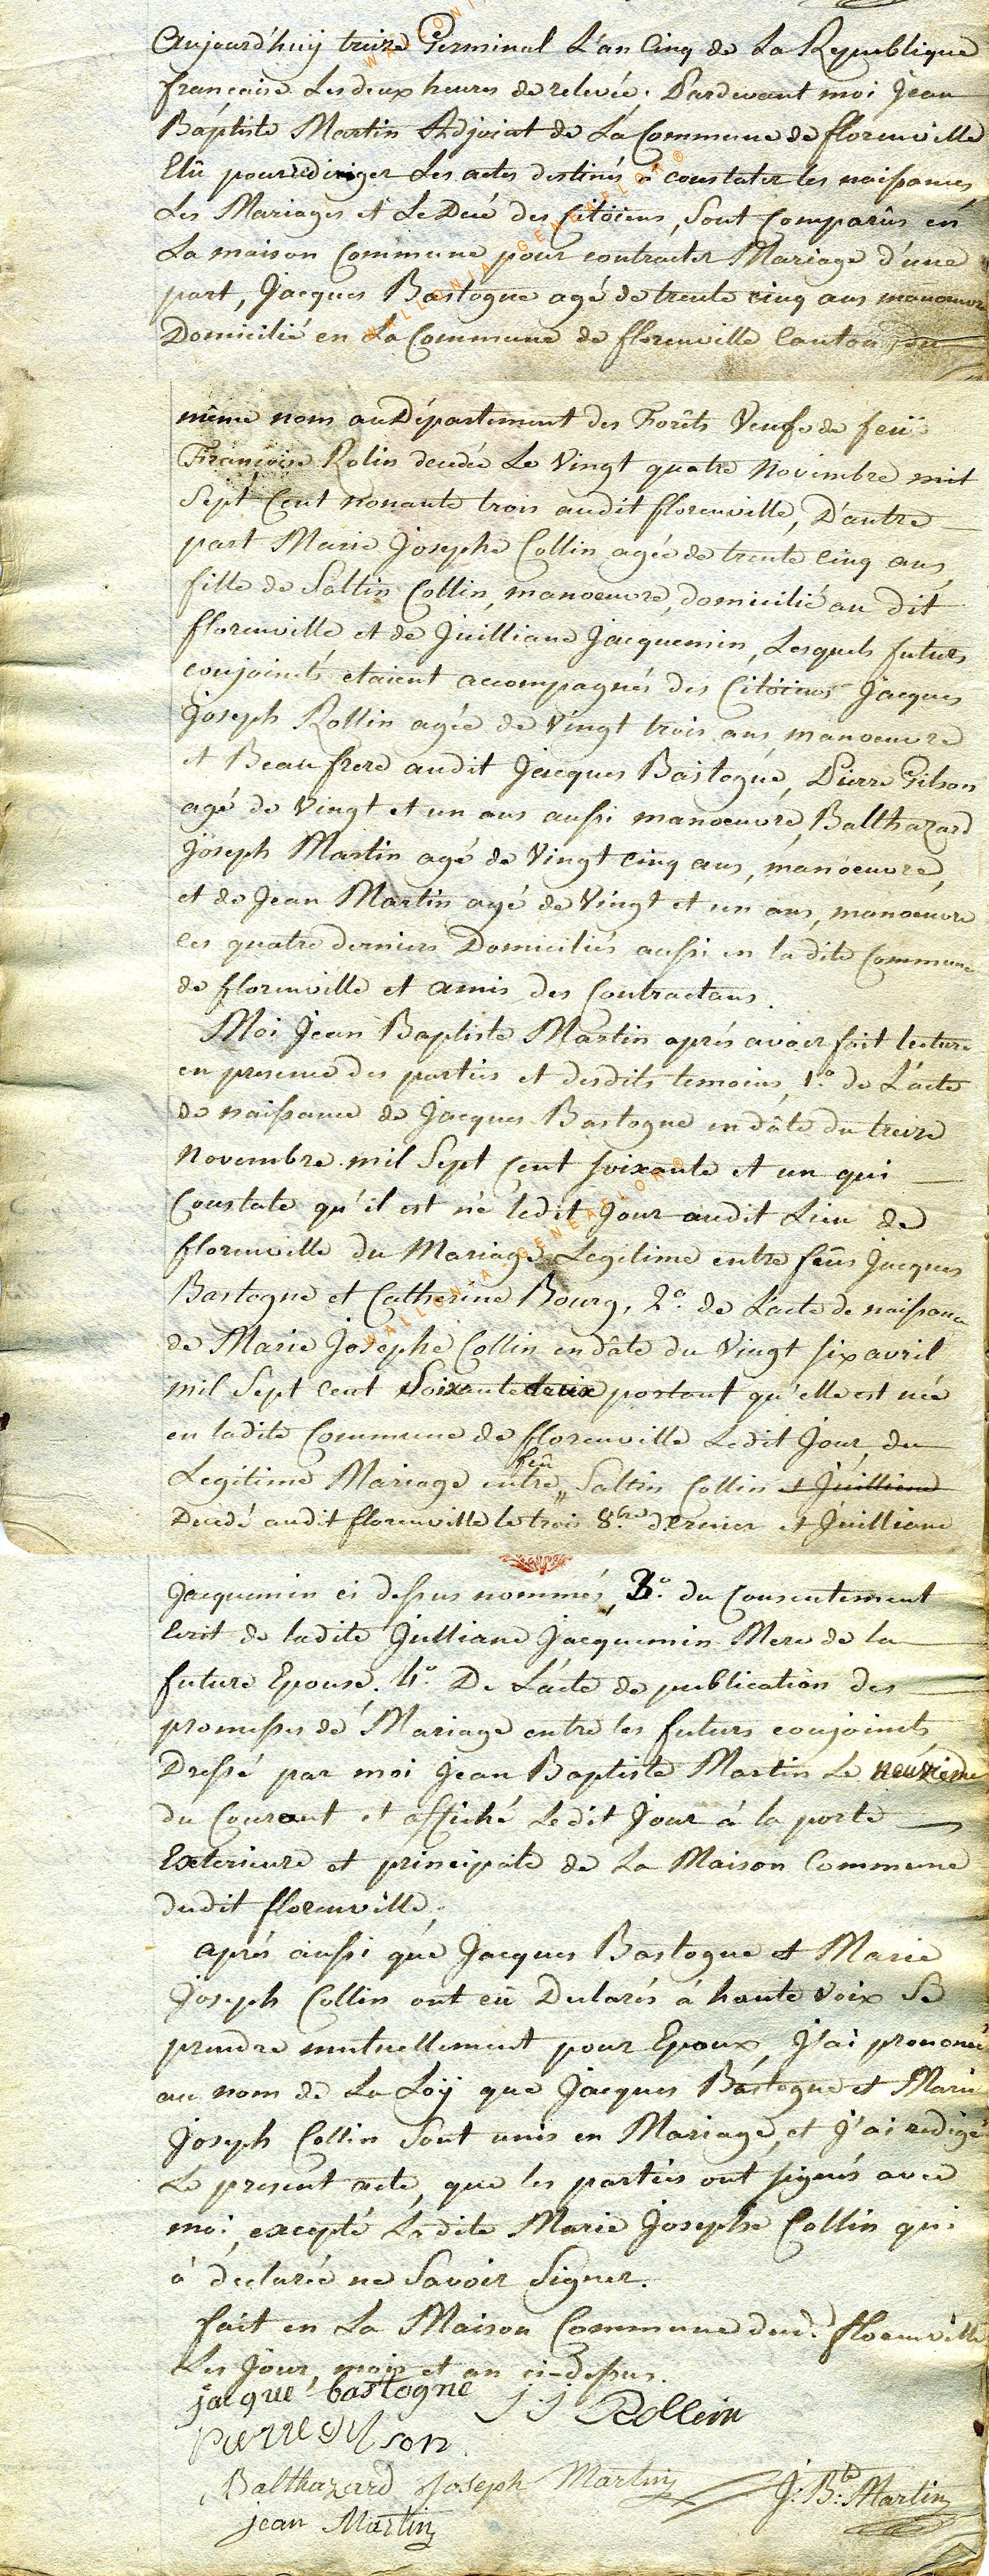 Aujourd'huÿ treize Germinal L'an Cinq de La Republique
francaise Les deux heures de relevée. Pardevant moi Jean
Baptiste Martin Adjoint de La Commune de florenville
Elû pour rediriger Les actes destinés à constater les naissances,
Les Mariages et Le Decé des Citöiens, Sont Comparûs en
La maison Commune pour contracter Mariage d'une
part, Jacques Bastogne agé de trente cinq ans manoeuvre
Domicilié en La Commune de florenville Canton du
même nom au Département des Forêts Veufe de feüe
Françoise Rolin decedée Le Vingt quatre Novembre mil
Sept Cent nonante trois audit florenville, D'autre
part Marie Josephe Collin agée de trente cinq ans,
fille de Saltin Collin, manoeuvre, domicilié au dit
florenville et de Juilliane Jacquemin, Lesquels futurs
conjoints etaient accompagnés des Citöiens Jacques
Joseph Rollin agée de Vingt trois ans, manoeuvre
et Beaufrere audit Jacques Bastogne, Pierre Gilson
agé de Vingt et un ans aussi manoeuvre, Balthazard
Joseph Martin agé de Vingt cinq ans, manoeuvre,
et de Jean Martin agé de Vingt et un ans, manoeuvre
les quatre derniers Domiciliés aussi en ladite Commune
de florenville et amis des Contractans.
Moi Jean Baptiste Martin aprés avoir fait lecture
en presence des parties et desdits temoins, 1.° de L'acte
de naissance de Jacques Bastogne en dâte du treize
Novembre mil Sept Cent soixante et un qui
Constate qu'il est né ledit Jour audit Lieu de
florenville du Mariage Legitime entre feûs Jacques
Bastogne et Catherine Bourg, 2.° de L'acte de naissance
de Marie Josephe Collin en dâte du Vingt six avril
mil Sept Cent Soixante deux portant qu'elle est née
en ladite Commune de florenville Ledit Jour, du
feû
Legitime Mariage entre Saltin Collin et Juilliane
Decedé audit florenville le trois 8.bre dernier et Juilliane
Jacquemin ci dessus nommés, 3.° du Consentement
Ecrit de ladite Julliane Jacquemin Mere de la
future Epouse. 4.° De L'acte de publication des
promesses de Mariage entre les futurs conjoints
Dressé par moi Jean Baptiste Martin Le neuvieme
du Courant et affiché Ledit Jour à la porte
Exterieure et principale de La Maison Commune
dudit florenville,
aprés aussi que Jacques Bastogne et Marie
Joseph Collin ont eû Declarés à haute Voix Se
prendre mutuellement pour Epoux, J'ai prononcé
au nom de La Loÿ que Jacques Bastogne et Marie
Joseph Collin Sont unis en Mariage, et J'ai redigé
Le present acte, que les parties ont signés avec
moi, excepté Ladite Marie Josephe Collin qui
à declarée ne Savoir Signer.
fait en La Maison Commune dud. florenville
Les Jour, mois et an ci-dessus.
jacque bastogne J. J Rollin
Pierre gilson
Balthazard Joseph Martin J: B:te Martin
jean Martin
WALLONIA GENEAFLOR ®
WALLONIA GENEAFLOR ®